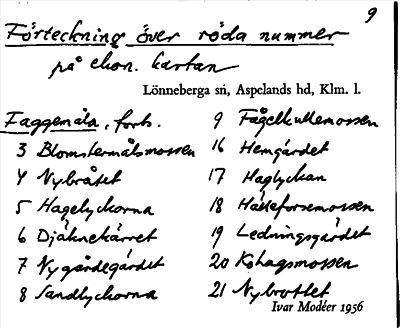 9
Förteckning över röda nummer
på ekon. kartan
Lönneberga sn, Aspelands hd, Klm. l.
Faggemåla, forts.
3 Blomstermålsmossen
4 Nybråtet
5 Hagelyckorna
6 Djäknekärret
7 Nygårdegärdet
8 Sandlyckorna
9 Fågelkullemossen
16 Hemgärdet
17 Haglyckan
18 Hälleforsemossen
19 Ledningsgärdet
20 Kohagsmossen
21 Nybrottet
Ivar Modéer 1956